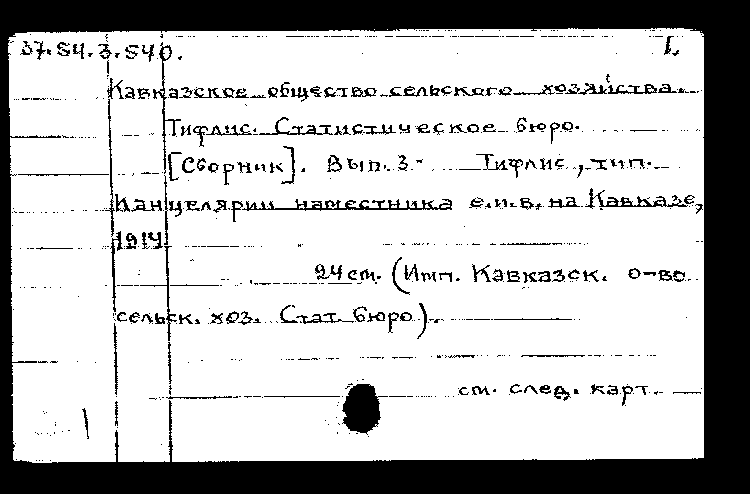 37.54.3.540. 1.
Кавказское общество сельского хозяйства.
Тифлис. Статистическое бюро.
[Сборник]. Вып. 3- Тифлис, тип.
Канцелярии наместника е.и.в. на Кавказе,
1914
24 см. (Имп. Кавказск. о-во
сельск. хоз. Стат. бюро).
см. след. карт.